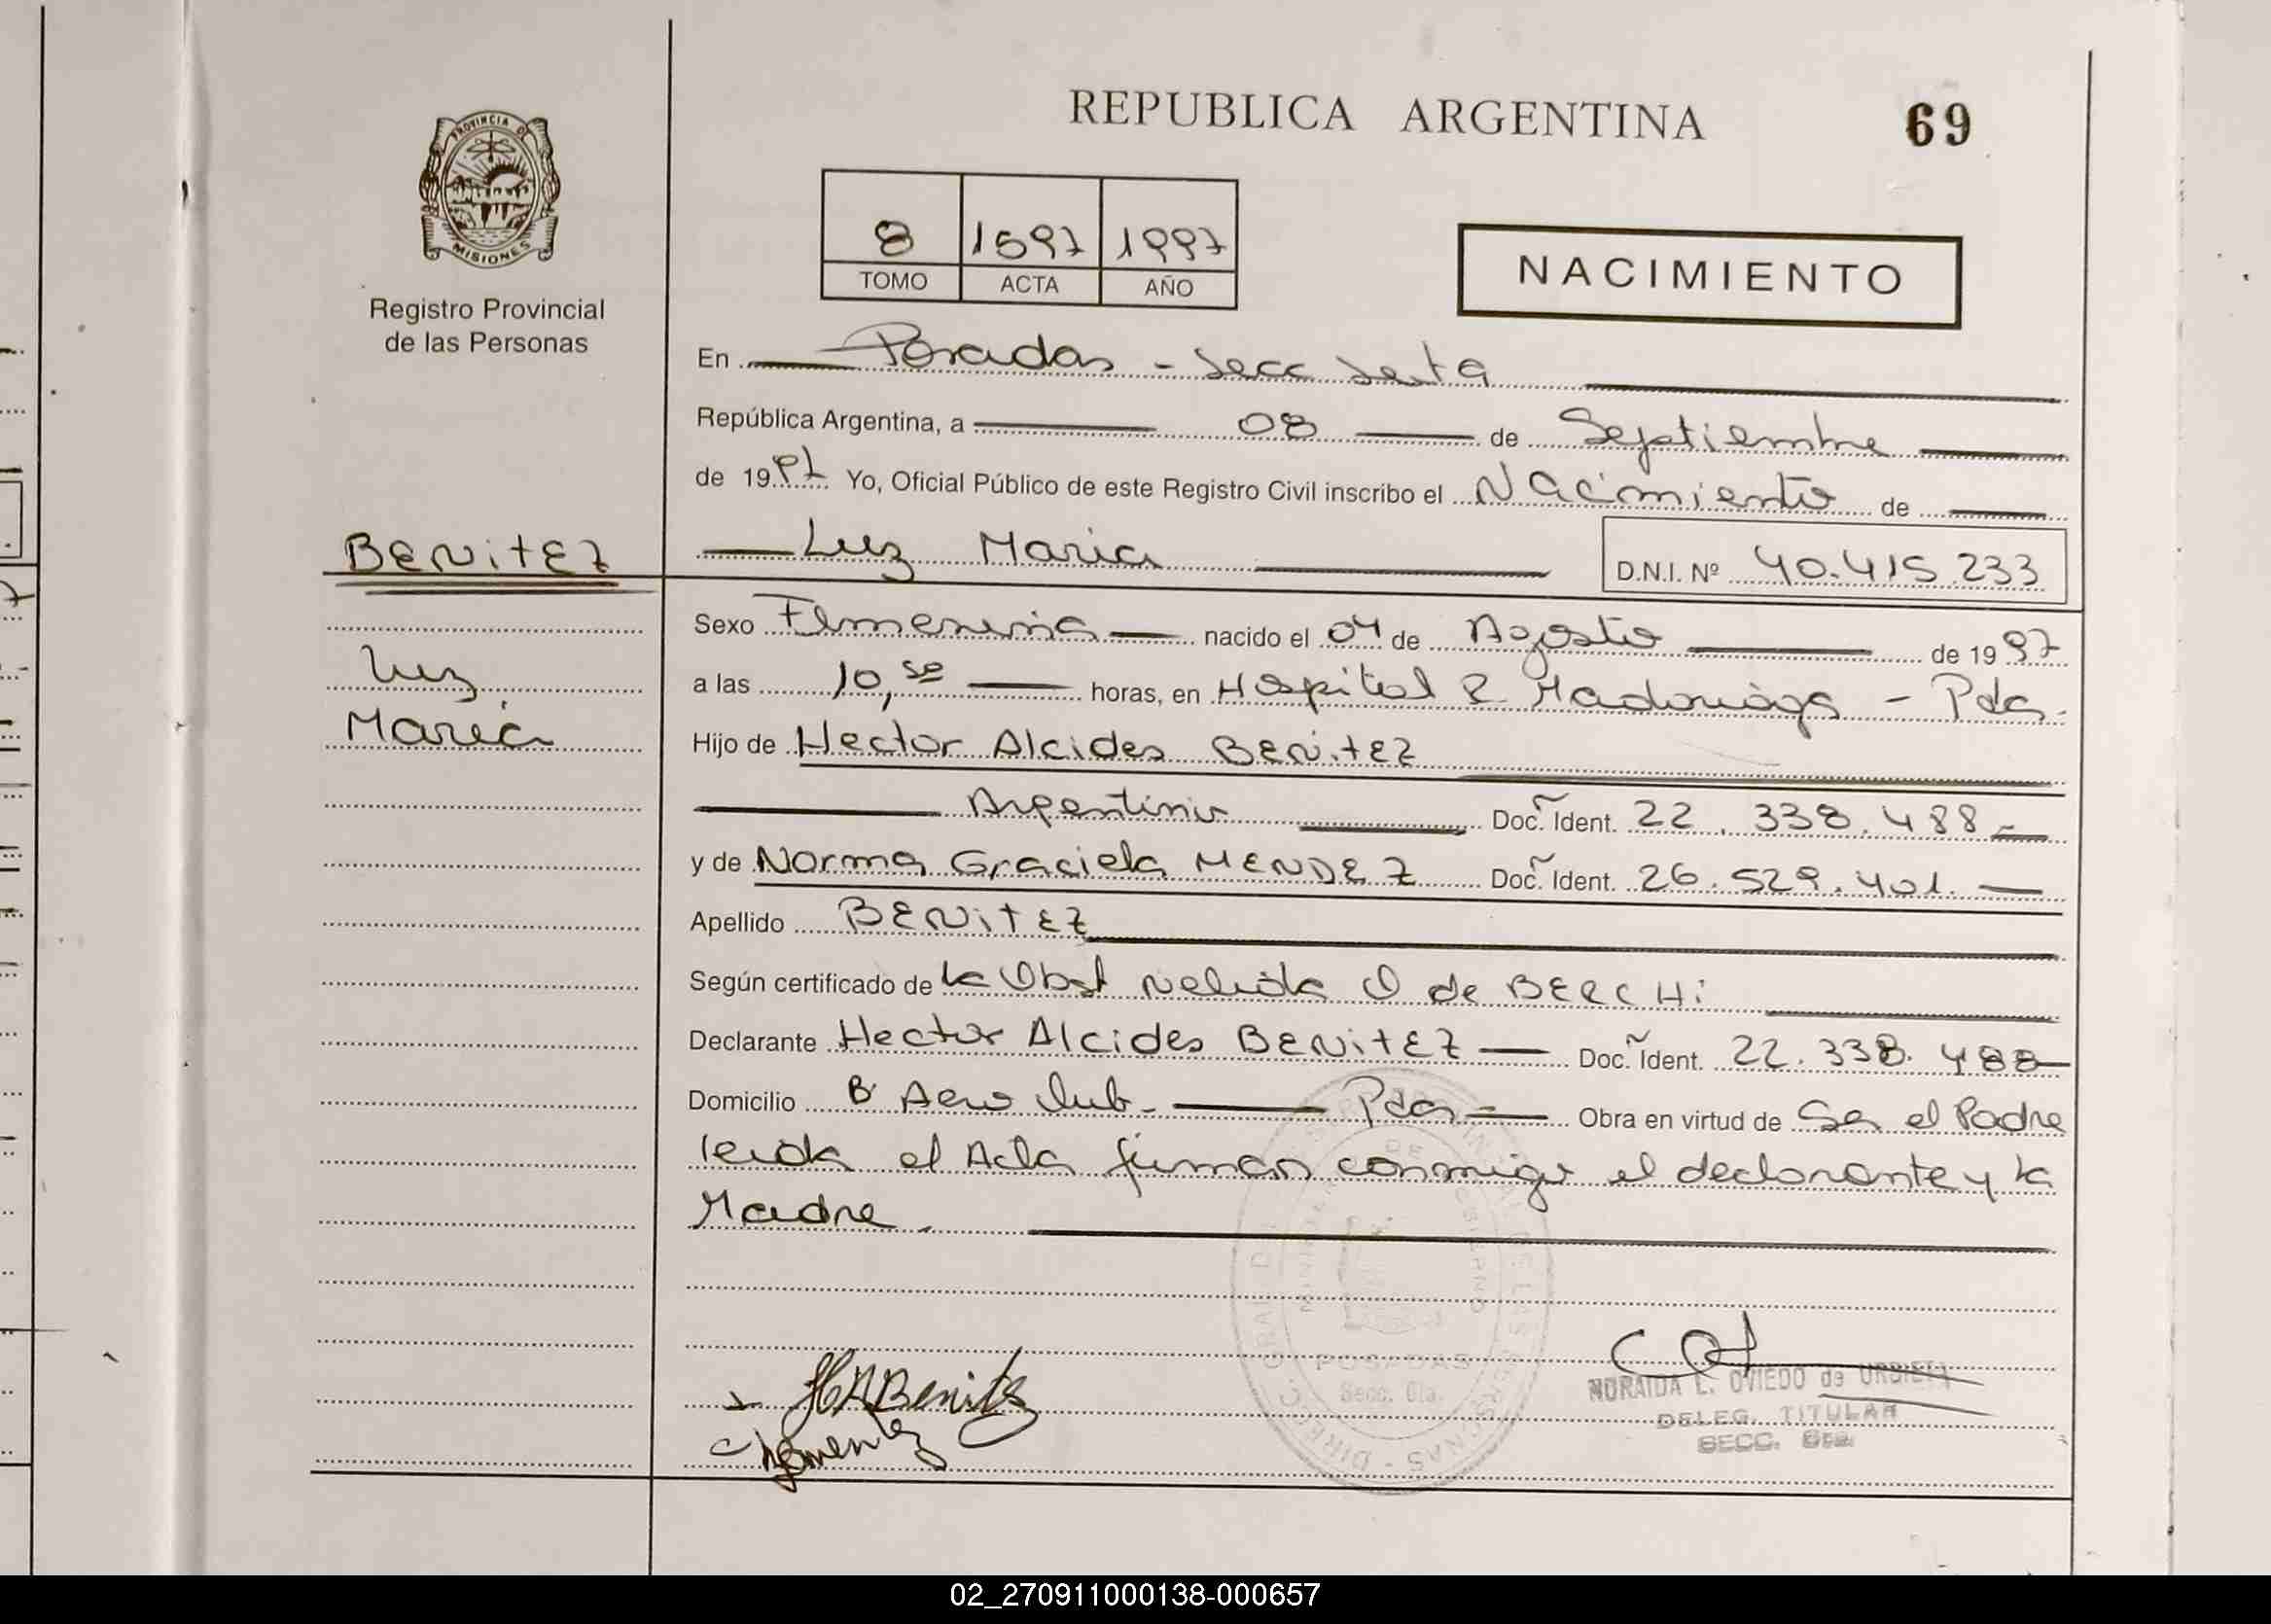 REPUBLICA ARGENTINA
69
PROVINCIA DE
MISIONES
Registro Provincial
de las Personas
8 1597 1997
TOMO ACTA AÑO
NACIMIENTO
En Posadas - Secc Sexta
República Argentina, a 08 de Septiembre
de 1997 Yo, Oficial Público de este Registro Civil inscribo el Nacimiento de
BENITEZ
Luz Maria
D.N.I. Nº 40.415.233
Luz
Maria
Sexo Femenina nacido el 04 de Agosto de 1997
a las 10,50 horas, en Hospital R Madariaga - Pdas.
Hijo de Hector Alcides BENITEZ
Argentina Doc. Ident. 22.338.488
y de Norma Graciela MENDEZ Doc. Ident. 26.529.401.
Apellido BENITEZ
Según certificado de la Obst Nelida O de BERCHI
Declarante Hector Alcides BENITEZ Doc. Ident. 22.338.488
Domicilio Bº Aero Club - Pdas Obra en virtud de Ser el Padre
leida el Acta firman conmigo el declarante y la
Madre.
POSADAS
Secc. 6ta.
HABenitez
NORAIDA L. OVIEDO de URBIETA
DELEG. TITULAR
SECC. 6ta.
02_270911000138-000657